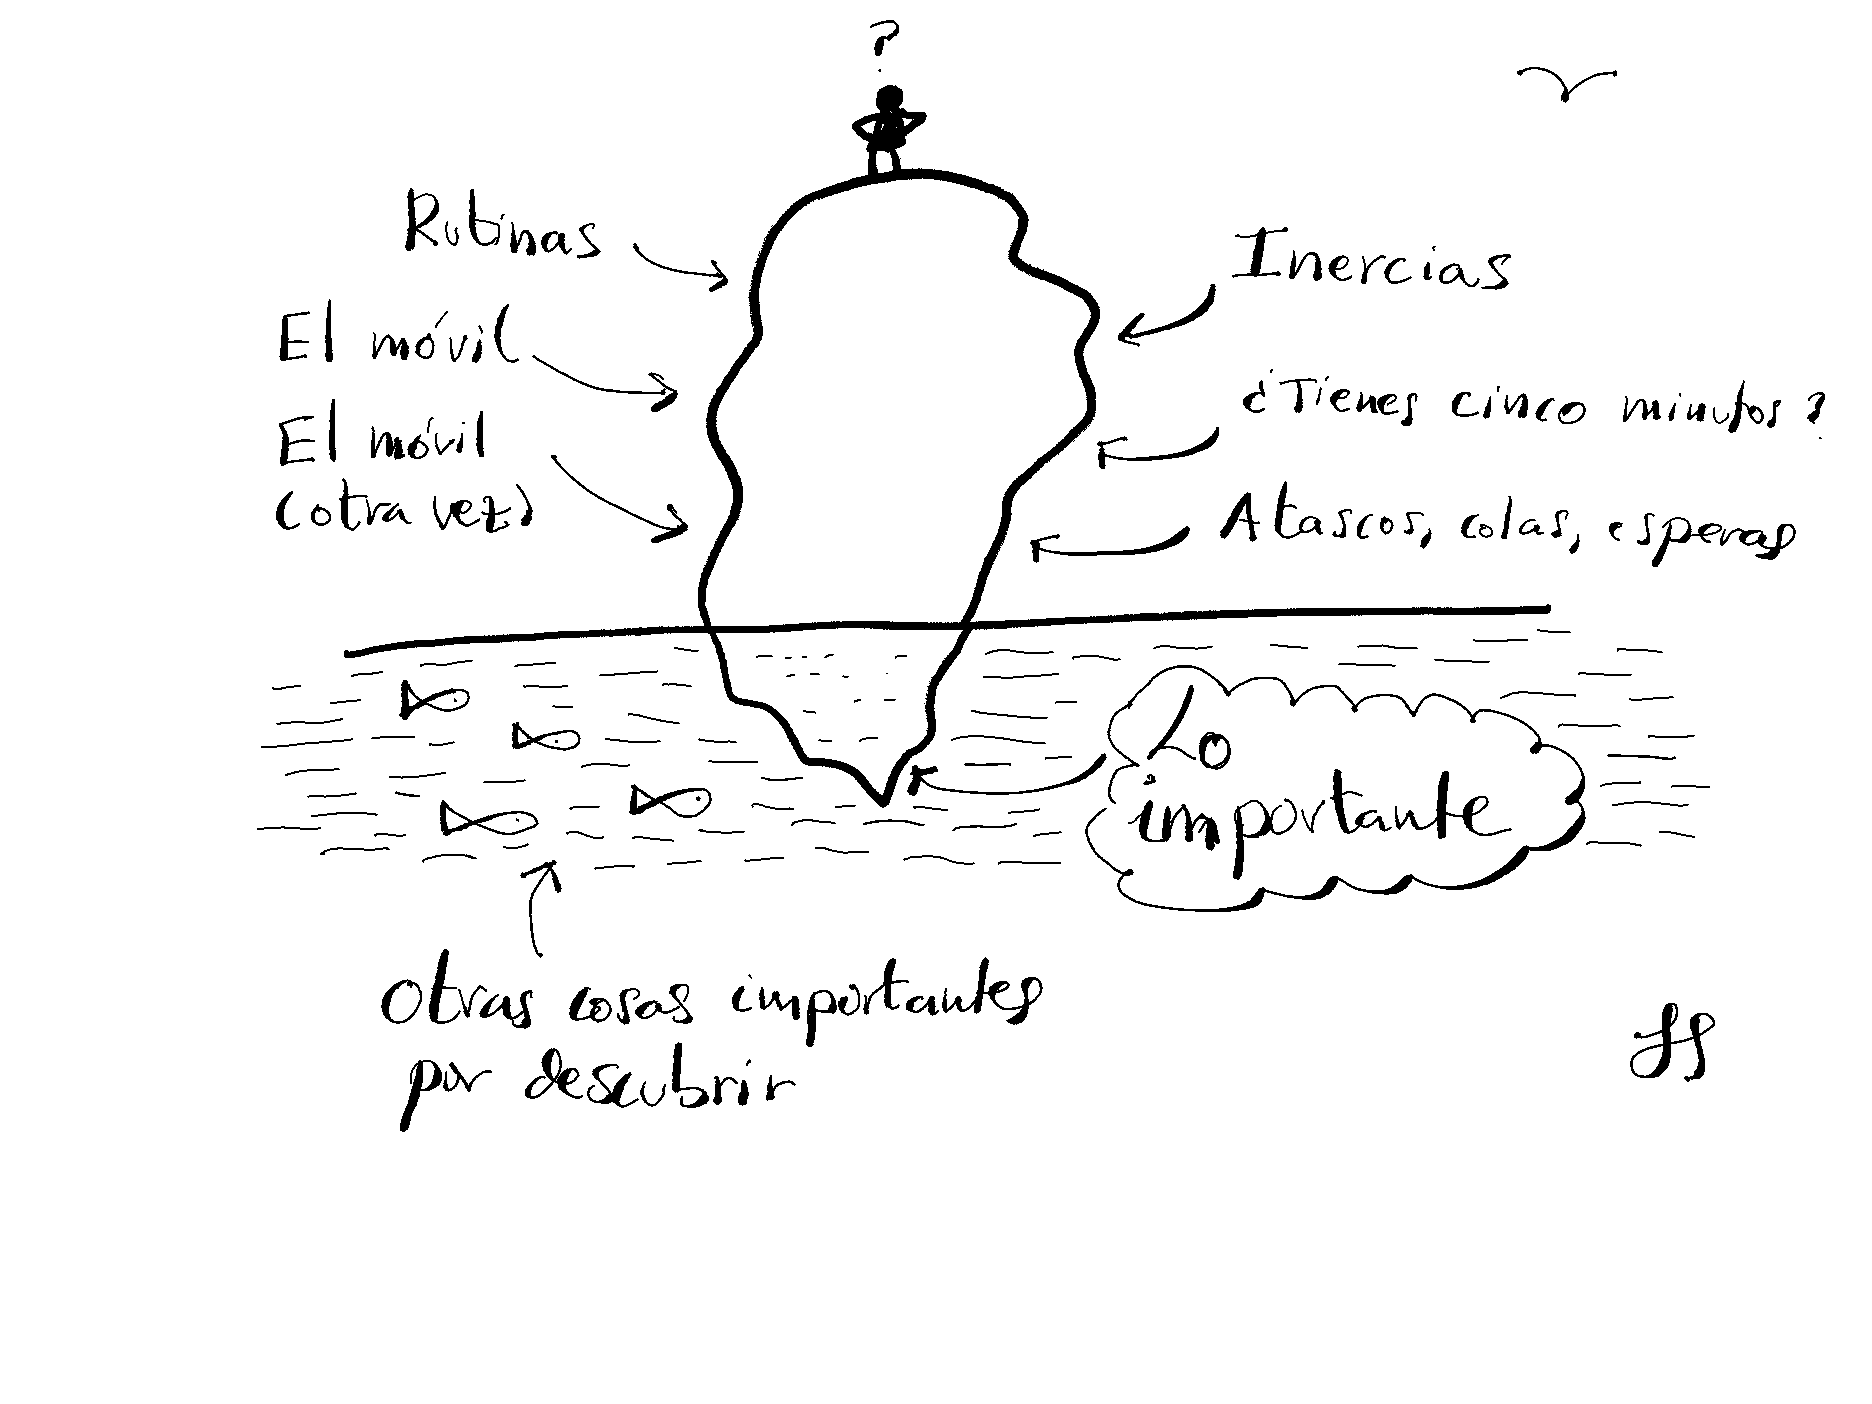 ?
Rutinas
Inercias
El móvil
¿Tienes cinco minutos?
El móvil
(otra vez)
Atascos, colas, esperas
Lo
importante
Otras cosas importantes
por descubrir